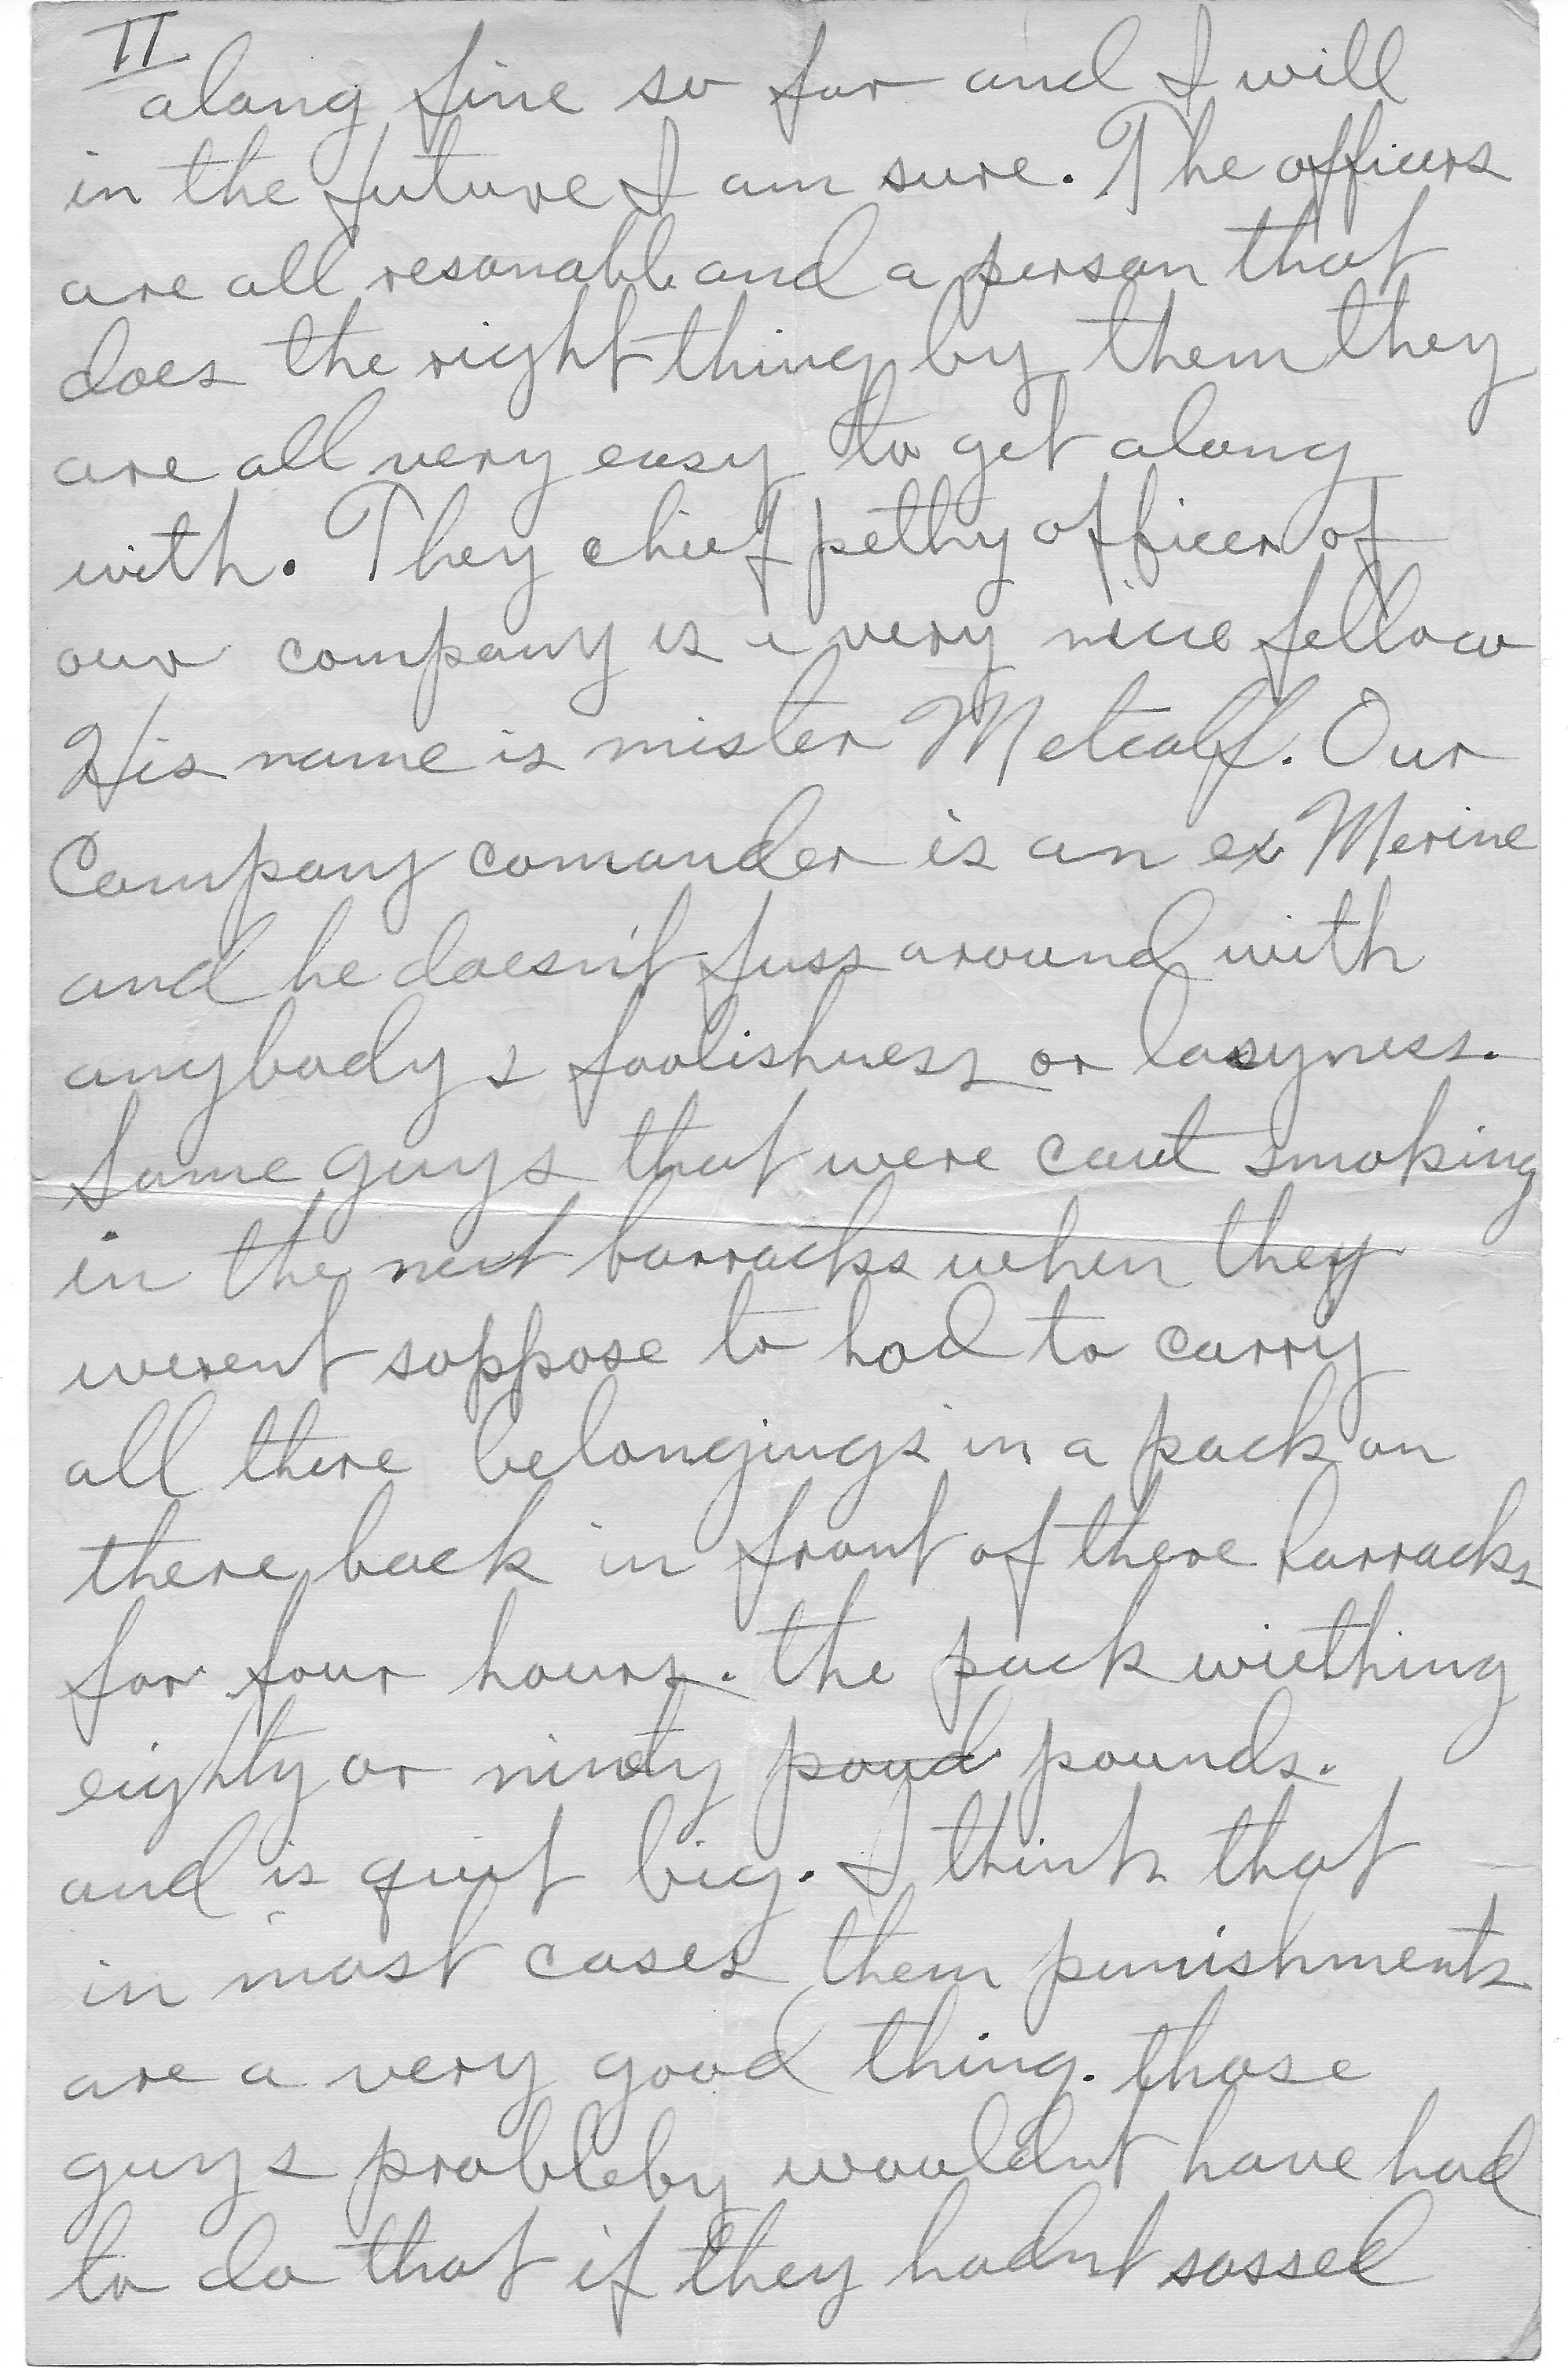 II
along fine so far and I will
in the future I am sure. The officers
are all resonabl and a person that
does the right thing by them they
are all very easy to get along
with. They chief pethy officer of
our company is a very nice fellow
His name is mister Metcalf. Our
Company comander is an ex Merine
and he doesn't fuss around with
anybody s foolishness or lasyness.
Some guys that were caut smoking
in the next barracks when they
werent soppose to had to carry
all there belongings in a pack on
there back in front of there barracks
for four hours. the pack wiething
eighty or nindy poud pounds.
and is quit big. I think that
in most cases them punishments
are a very good thing. those
guys probleby wouldnt have had
to do that if they hadnt sassed